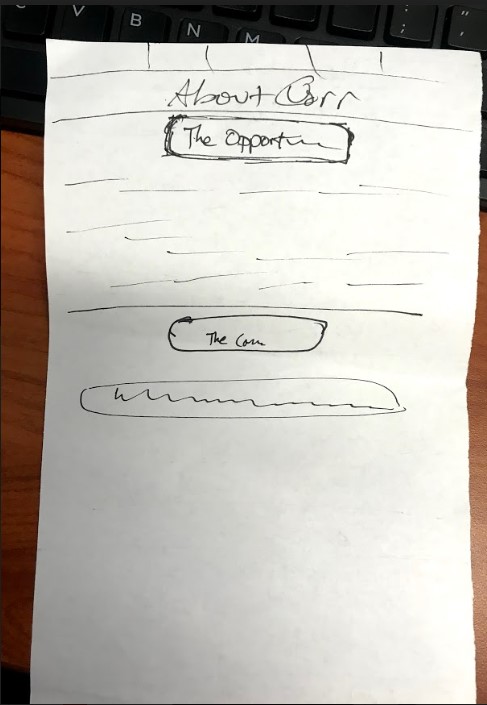 V B N M
; "
About Corr
The Opport
The Com